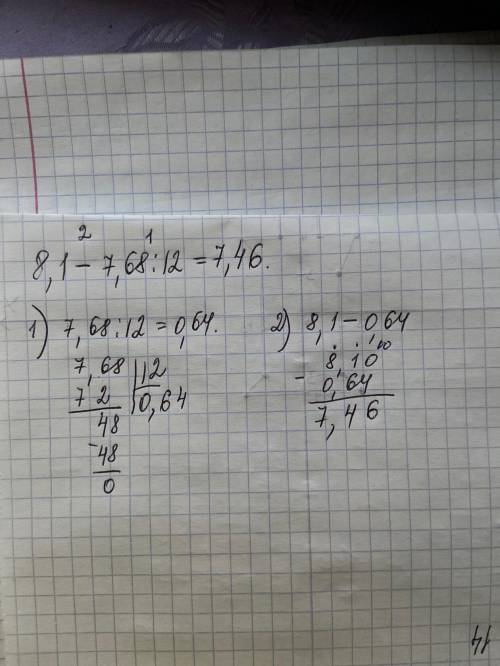 2 1
8,1 - 7,68 : 12 = 7,46.
1) 7,68 : 12 = 0,64.
7,68 | 12
7 2 | 0,64
48
- 48
0
2) 8,1 - 0,64
10
8,10
- 0,64
7,46
14